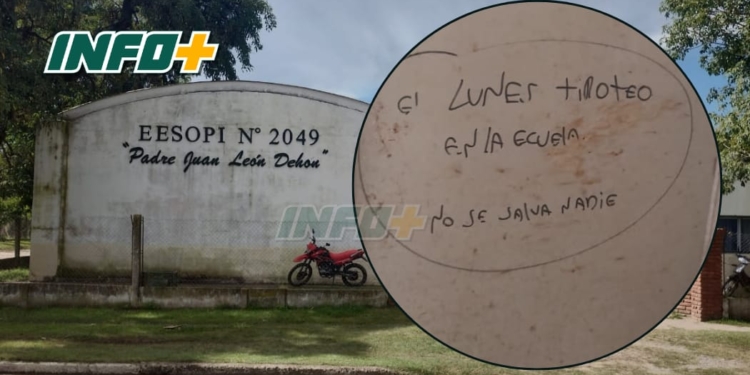 INFO+
EESOPI Nº 2049
"Padre Juan León Dehon"
El LUNES TIROTEO
EN LA ESCUELA
NO SE SALVA NADIE
INFO+